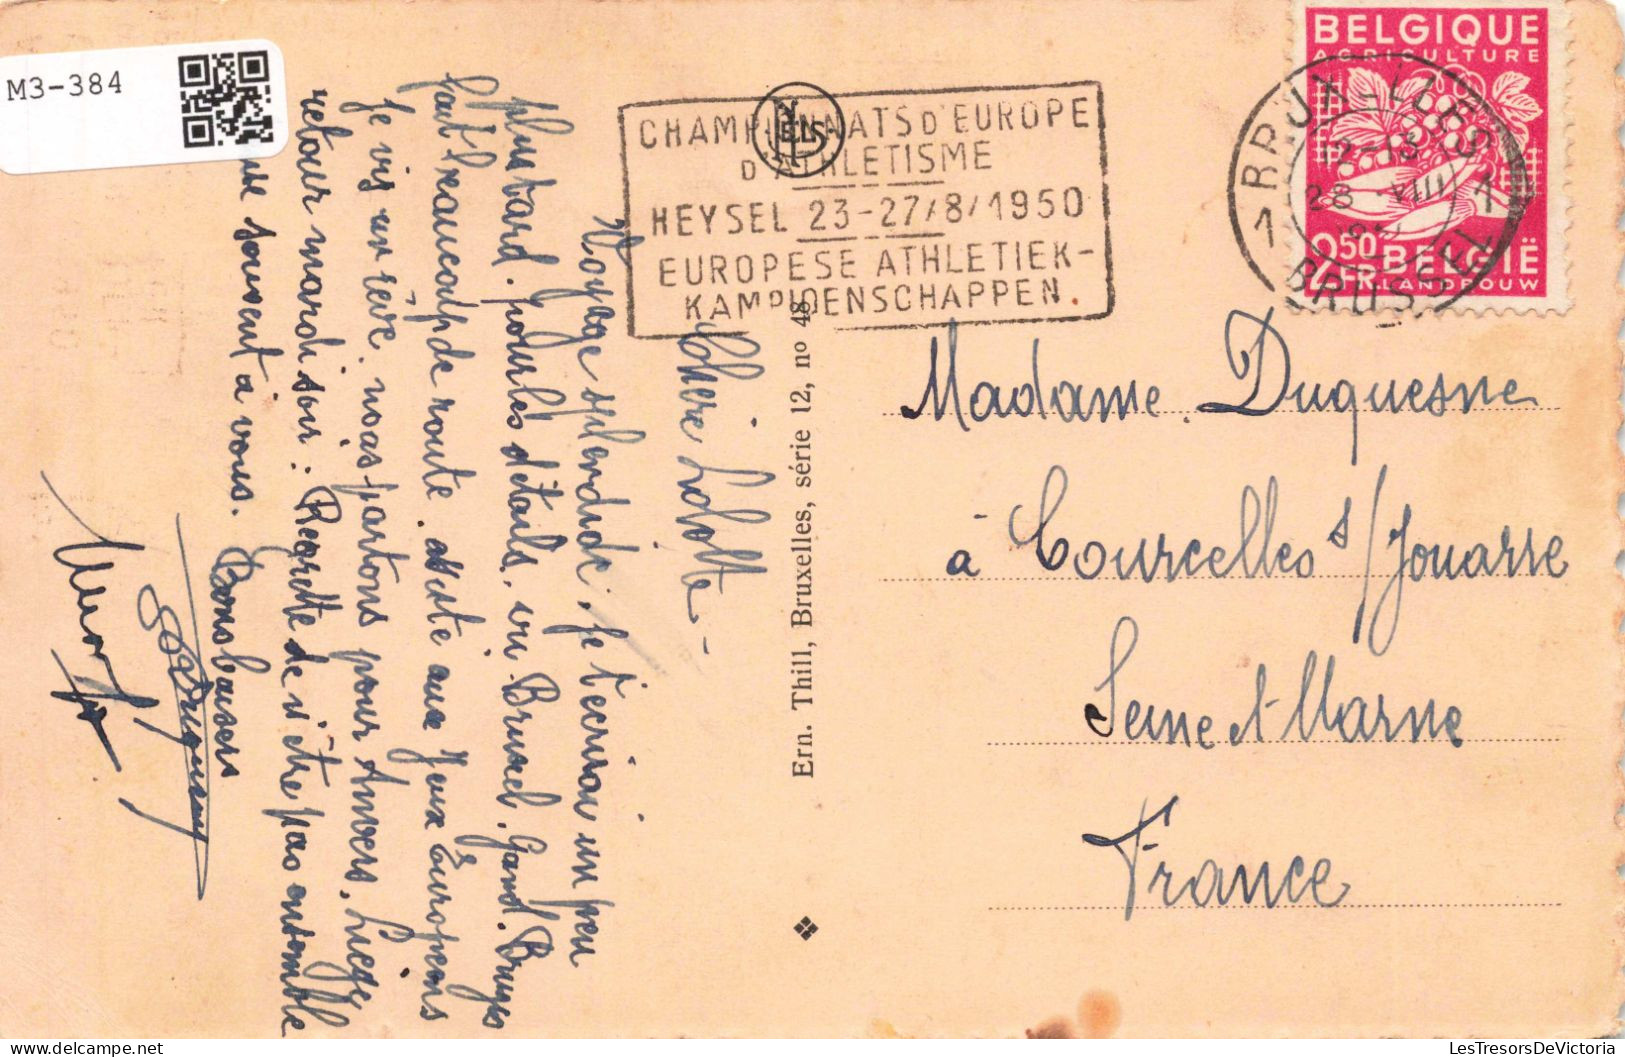 M3-384
CHAMPIONNATS D'EUROPE
D'ATHLETISME
HEYSEL 23-27/8/1950
EUROPESE ATHLETIEK-
KAMPIOENSCHAPPEN.
NELS
BELGIQUE
AGRICULTURE
2,50 FR
BELGIË
LANDBOUW
1 BRUXELLES 1
12-13
28 VIII
BRUSSEL
Chère Lolotte -
Voyage splendide. Je t'écrirai un peu
plus tard. pour les détails. vu Bruxel. Gand. Bruges
fait beaucoup de route. assisté aux Jeux Européens
Je vis un rêve. nous partons pour Anvers. Liège
retour mardi soir. Regrette de n'être pas ensemble
souvent à vous. Bons baisers
Ern. Thill, Bruxelles, série 12, no 48
Madame Duquesne
à Courcelles s/Jouarre
Seine et Marne
France
LesTresorsDeVictoria